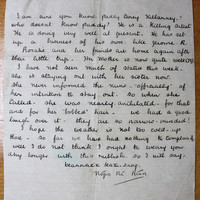 I am sure you know paddy
who doesn't know paddy! He is a killing artist
He is doing very well at present. He has set
up a business of his own. like Jerome R.
Horake and her friend are home again after
their little trip. Mother is now quite well
I have not seen much of Orator this week.
she is staying out with her sister now.
She never informed the nuns "officially" of
her intention to stay out. so when she
called she was nearly annihilated - for that
and for her "bobbed" hair. We had a good
laugh over it - they are so narrow-minded!
I hope the weather is not too cold up
- so far we have had nothing to complain of
Well I do not think I ought to weary you
any longer with this rubbish. so I will say.
beannacht
Nóra Ní